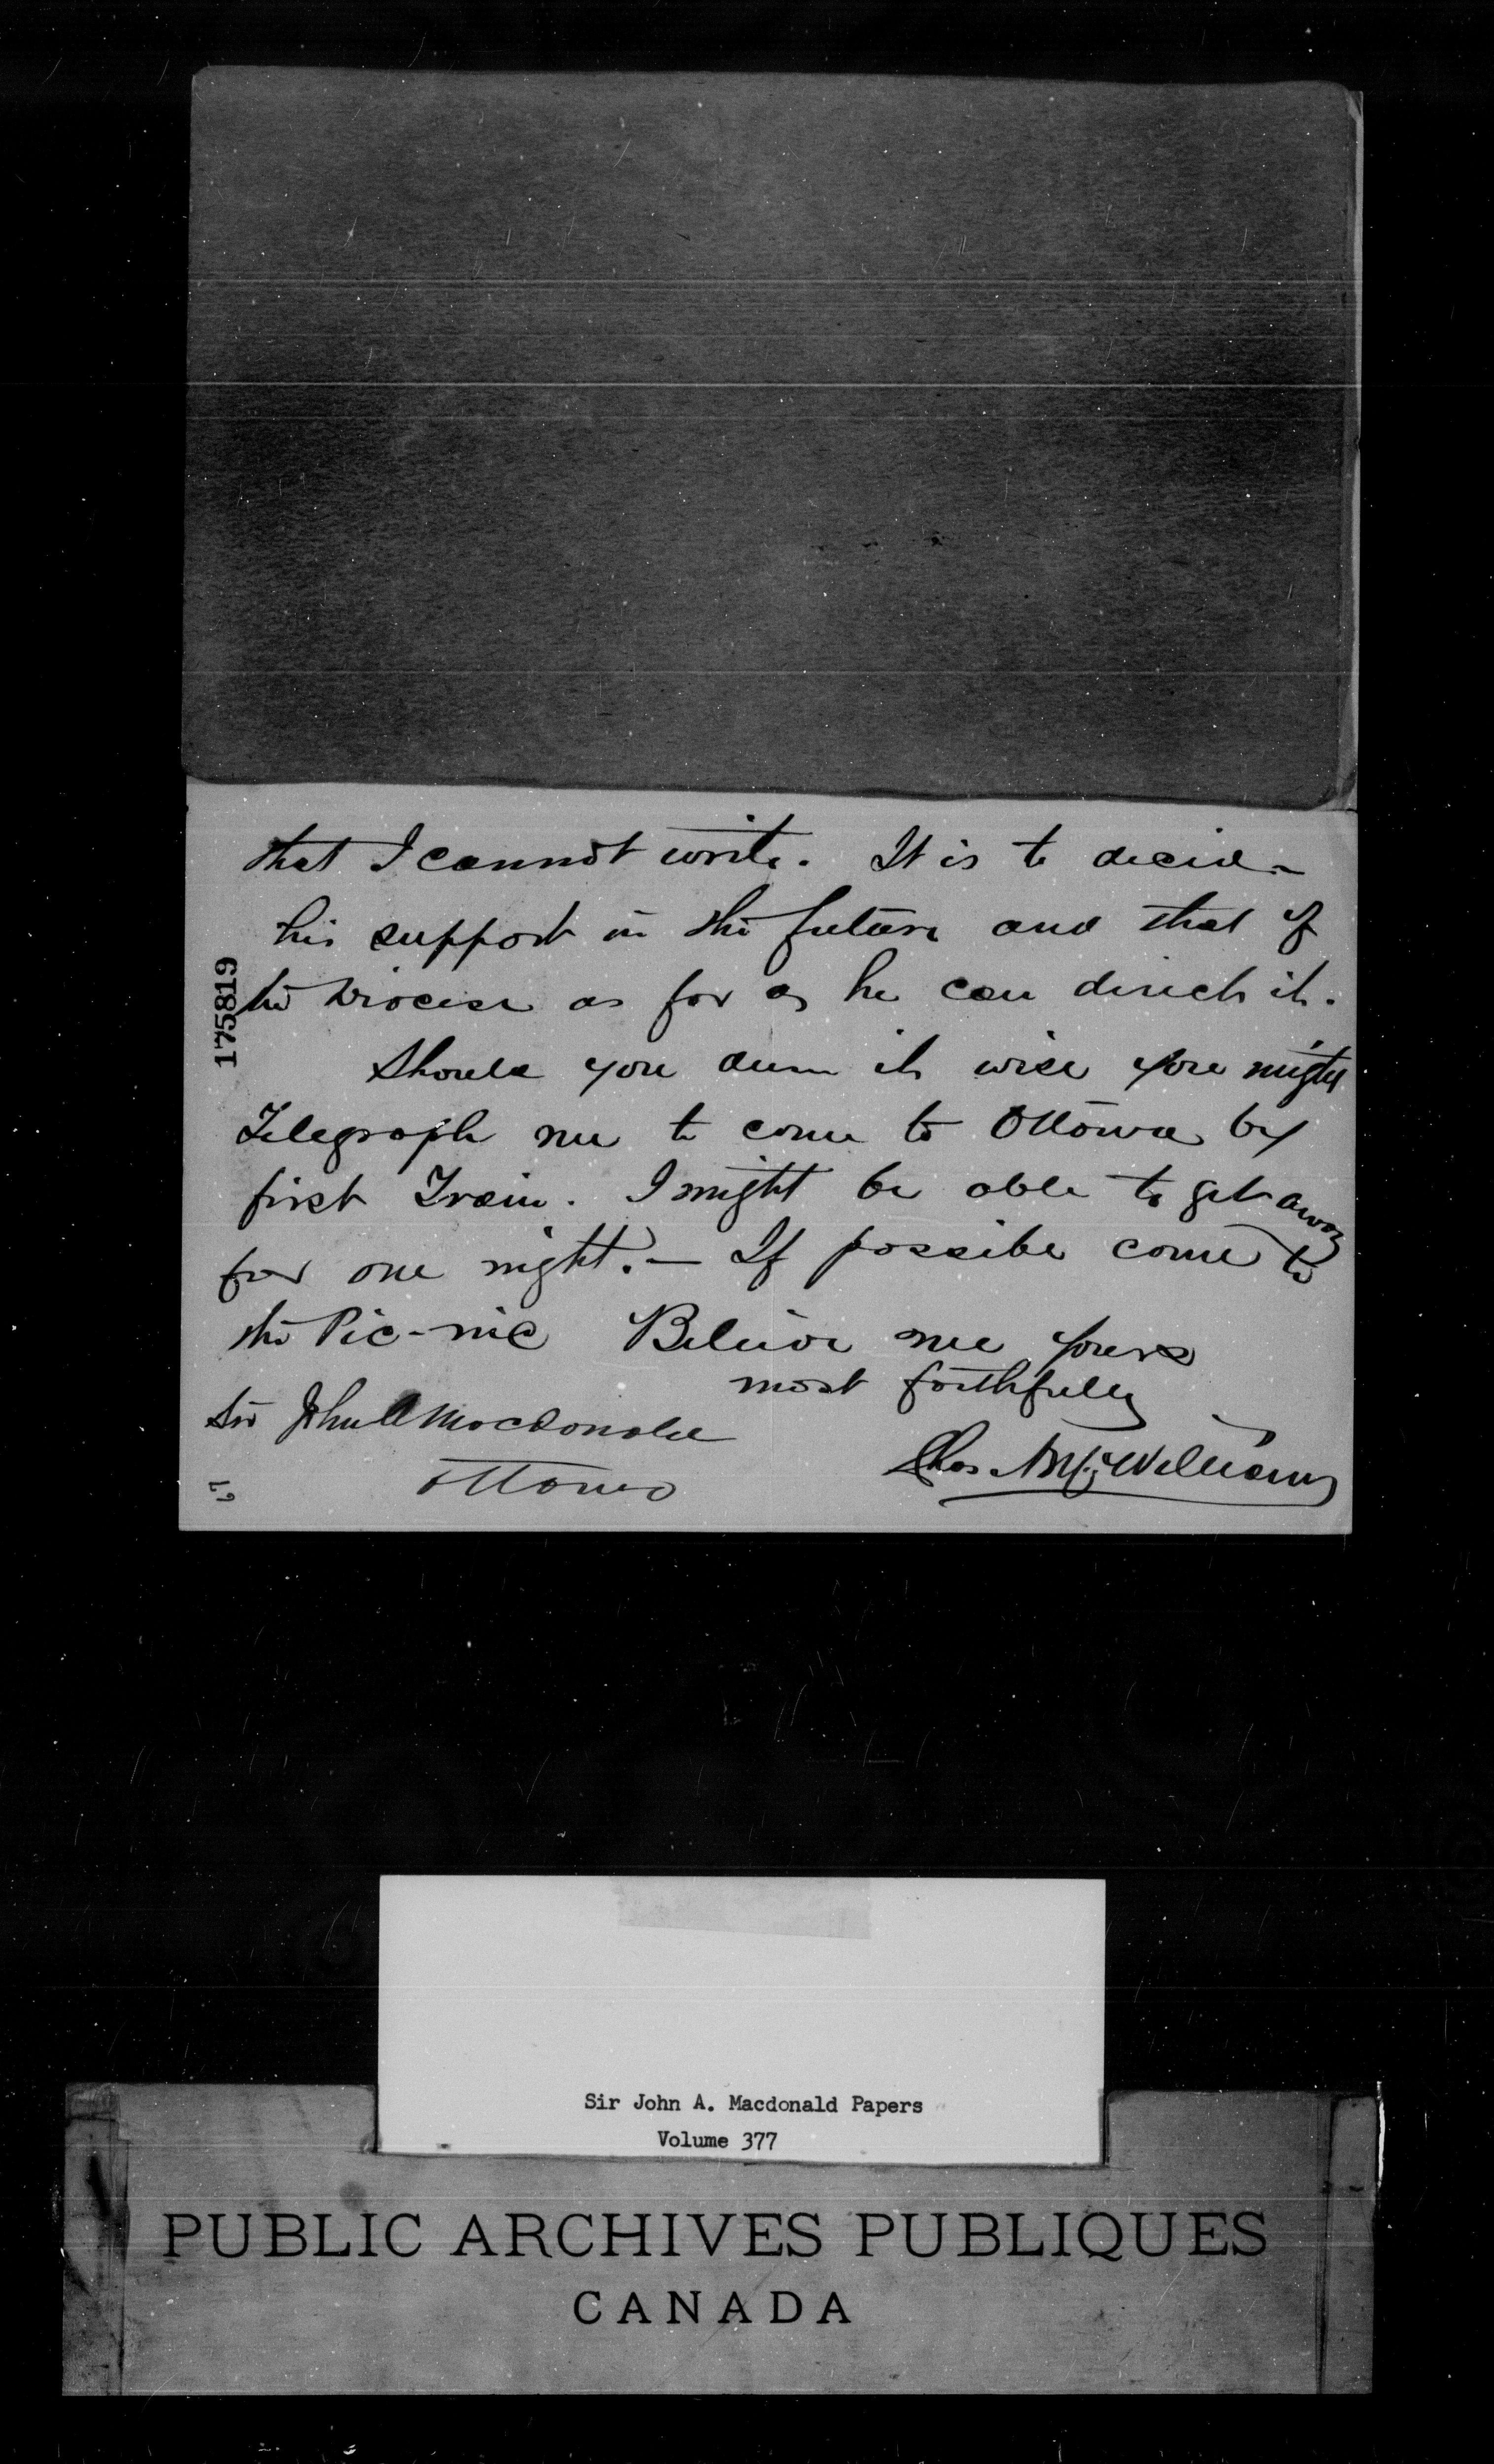 that I cannot write. It is to decide
his support in the future and that of
the Diocese as far as he can direct it.
175819
Should you deem it wise you might
Telegraph me to come to Ottawa by
first Train. I might be able to get away
for one night. — If possible come to
the Pic-nic Believe me yours
most faithfully
Sir John A Macdonald
Ottawa
Sir John A. Macdonald Papers
Volume 377
PUBLIC ARCHIVES PUBLIQUES
CANADA